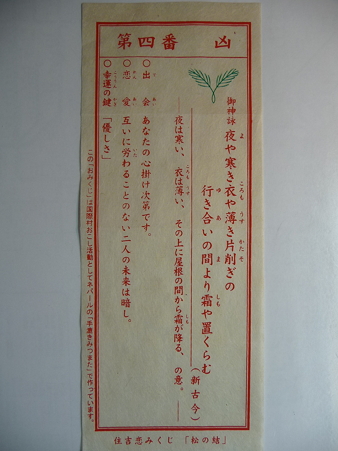 第四番 凶
御神詠 夜や寒き衣や薄き片削ぎの
行き合いの間より霜や置くらむ
(新古今)
夜は寒い、衣は薄い、その上に屋根の間から霜が降る、の意。
○出会 あなたの心掛け次第です。
○恋愛 互いに労わることのない二人の未来は暗し。
○幸運の鍵 「優しさ」
この「おみくじ」は国際村おこし活動としてネパールの「手漉きみつまた」で作っています。
住吉恋みくじ 「松の結」